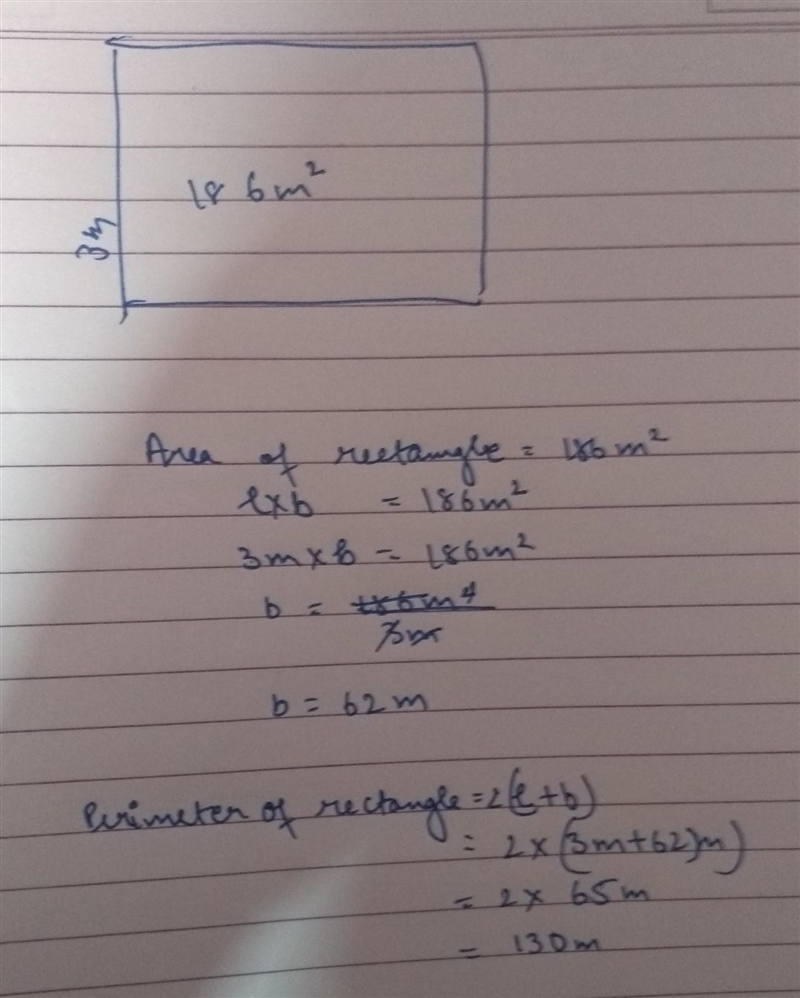 186m²
3m
Area of rectangle = 186 m²
l×b = 186m²
3m×b = 186m²
b = 186m²
3m
b = 62m
Perimeter of rectangle = 2(l+b)
= 2×(3m+62)m)
= 2× 65m
= 130m